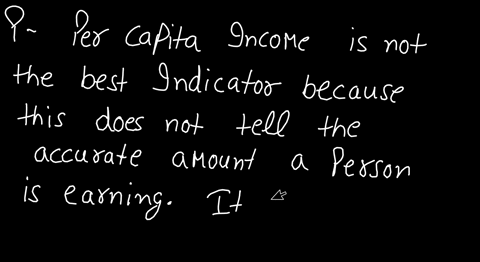 P- Per Capita Income is not
the best Indicator because
this does not tell the
accurate amount a Person
is earning. It